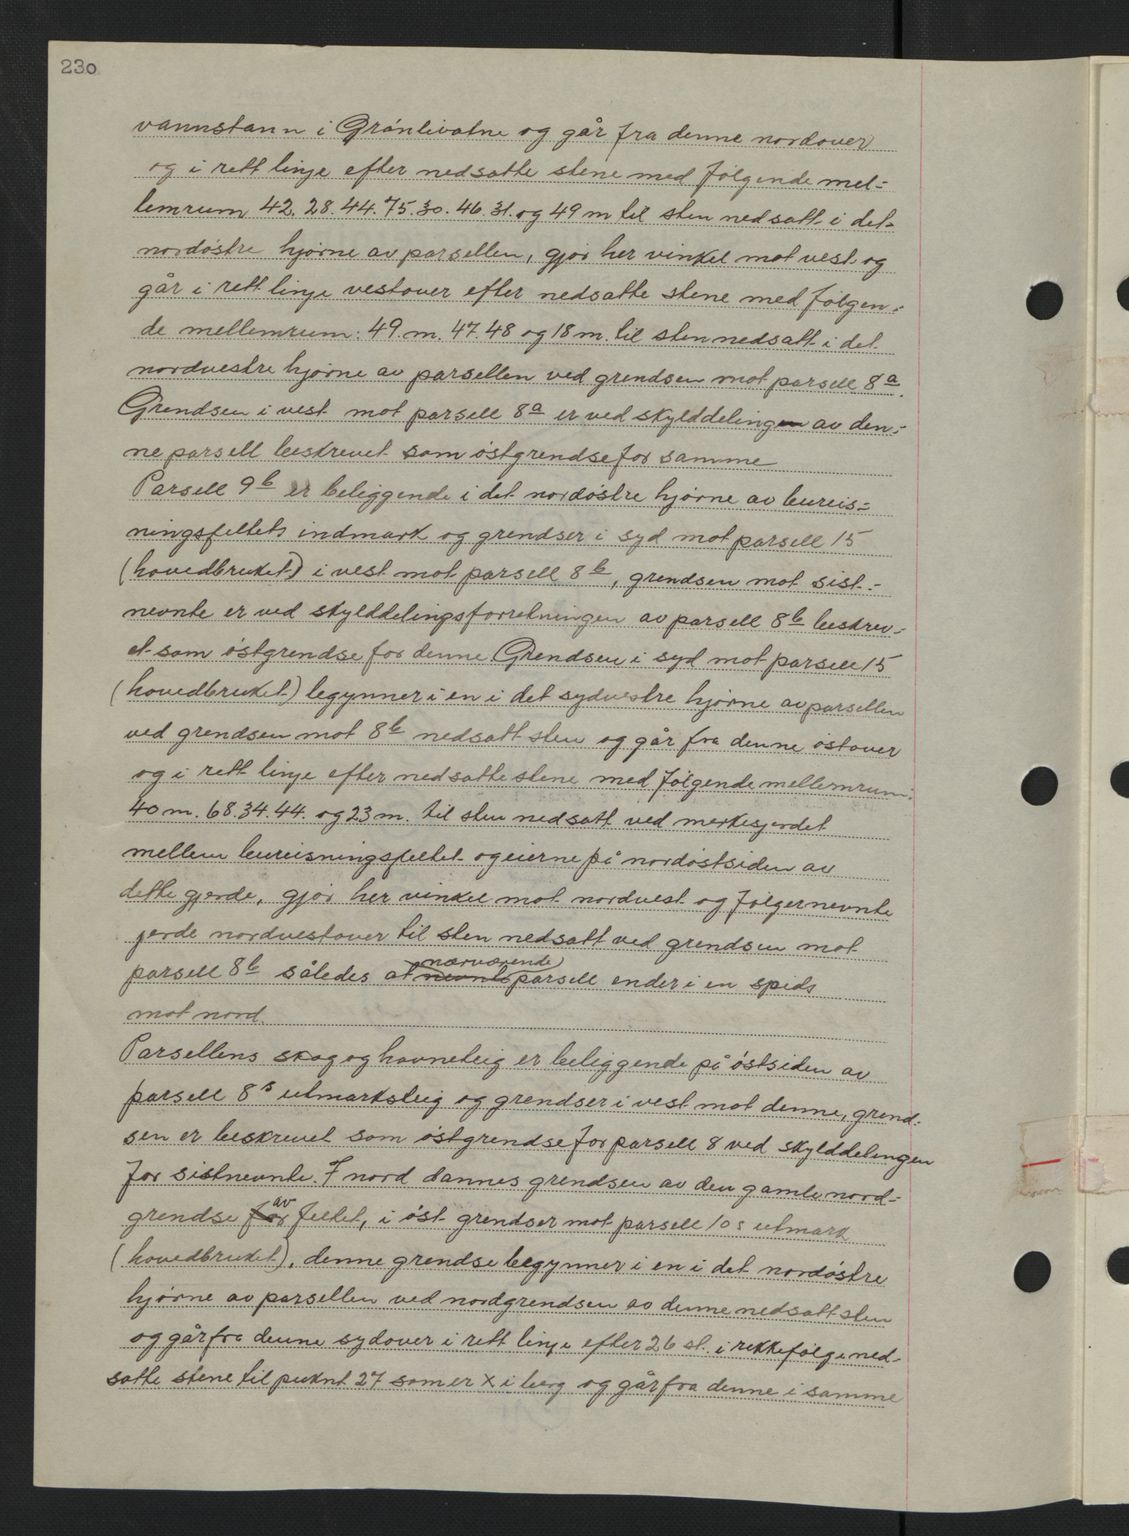 230
vannstann i Grónlivatne og går fra denne nordover
og i rett linje efter nedsatte stene med følgende mel-
lemrum 42, 28. 44. 75. 30. 46. 31. og 49 m til sten nedsatt i det
nordóstre hjørne av parsellen, gjør her vinkel mot vest og
går i rett linje vestover efter nedsatte stene med følgen-
de mellemrum: 49 m. 47. 48 og 18 m. til sten nedsatt i det
nordvestre hjørne av parsellen ved grendsen mot parsell 8a.
Grendsen i vest mot parsell 8a er ved skylddelingen av den-
ne parsell beskrevet som østgrendse for samme
Parsell 9b er beliggende i det nordóstre hjørne av bureis-
ningsfeltets indmark og grendser i syd mot parsell 15
(hovedbruket) i vest mot parsell 8b, grendsen mot sist-
nevnte er ved skylddelingsforretningen av parsell 8b beskrev-
et som østgrendse for denne. Grendsen i syd mot parsell 15
(hovedbruket) begynner i en i det sydvestre hjørne av parsellen
ved grendsen mot 8b nedsatt sten og går fra denne østover
og i rett linje efter nedsatte stene med følgende mellemrum:
40 m. 68. 34. 44. og 23 m. til sten nedsatt ved merkesjerdet
mellem bureisningsfeltet og eierne på nordøstsiden av
dette gjerde, gjør her vinkel mot nordvest og følger nevnte
jerde nordvestover til sten nedsatt ved grendsen mot
parsell 8b således at nevnte nærværende parsell ender i en spids
mot nord.
Parsellens skog og havneteig er beliggende på østsiden av
parsell 8s utmarksteig og grendser i vest mot denne, grend-
sen er beskrevet som østgrendse for parsell 8 ved skylddelingen
for sistnevnte. I nord dannes grendsen av den gamle nord-
grendse for av feltet, i øst grendser mot parsell 10s utmark
(hovedbruket), denne grendse begynner i en i det nordøstre
hjørne av parsellen ved nordgrendsen av denne nedsatt sten
og går fra denne sydover i rett linje efter 26 st. i rekkefølge ned-
satte stene til puknt 27 som er x i berg og går fra denne i samme